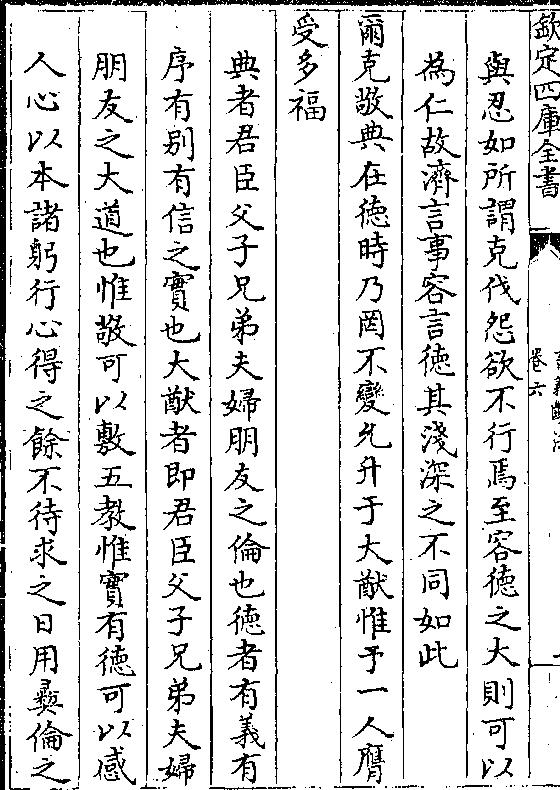 欽定四庫全書
卷六
與忍如所謂克伐怨欲不行焉至容徳之大則可以
為仁故濟言事容言徳其淺深之不同如此
爾克敬典在徳時乃罔不變允升于大猷惟予一人膺
受多福
典者君臣父子兄弟夫婦朋友之倫也徳者有義有
序有别有信之實也大猷者即君臣父子兄弟夫婦
朋友之大道也惟敬可以敷五教惟實有徳可以感
人心以本諸躬行心得之餘不待求之日用彞倫之